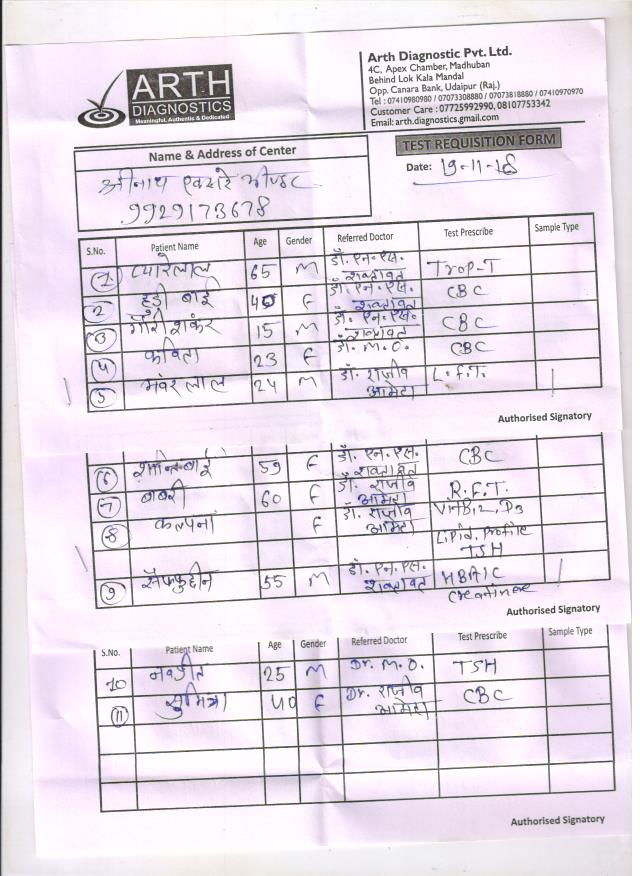 ARTH
DIAGNOSTICS
Meaningful, Authentic & Dedicated
Arth Diagnostic Pvt. Ltd.
4C, Apex Chamber, Madhuban
Behind Lok Kala Mandal
Opp. Canara Bank, Udaipur (Raj.)
Tel : 07410980980 / 07073308880 / 07073818880 / 07410970970
Customer Care : 07725992990, 08107753342
Email: arth.diagnostics.gmail.com
TEST REQUISITION FORM
Name & Address of Center
Date: 19-11-18
श्रीनाथ एक्सरे भीण्डर
9929173678
S.No. Patient Name Age Gender Referred Doctor Test Prescribe Sample Type
1 प्यारेलाल 65 M डॉ. एन. एस. शक्तावत Trop-T
2 हुडी बाई F डॉ. एन. एस. शक्तावत CBC
3 गौरी शंकर 15 M डॉ. एन. एस. शक्तावत CBC
4 कविता 23 F डॉ. M. O. CBC
5 भंवर लाल 24 M डॉ. राजीव आमेटा L.F.T.
Authorised Signatory
6 बाई 59 F डॉ. एन. एस. शक्तावत CBC
7 बाबरी 60 F डॉ. राजीव आमेटा R.F.T.
8 कल्पना F डॉ. राजीव आमेटा VitB12, D3
Lipid Profile
TSH
9 सैफुद्दीन 55 M डॉ. एन. एस. शक्तावत HBA1C
Creatinine
Authorised Signatory
S.No. Patient Name Age Gender Referred Doctor Test Prescribe Sample Type
10 नवनीत 25 M Dr. M. O. TSH
11 सुमित्रा 40 F Dr. राजीव आमेटा CBC
Authorised Signatory